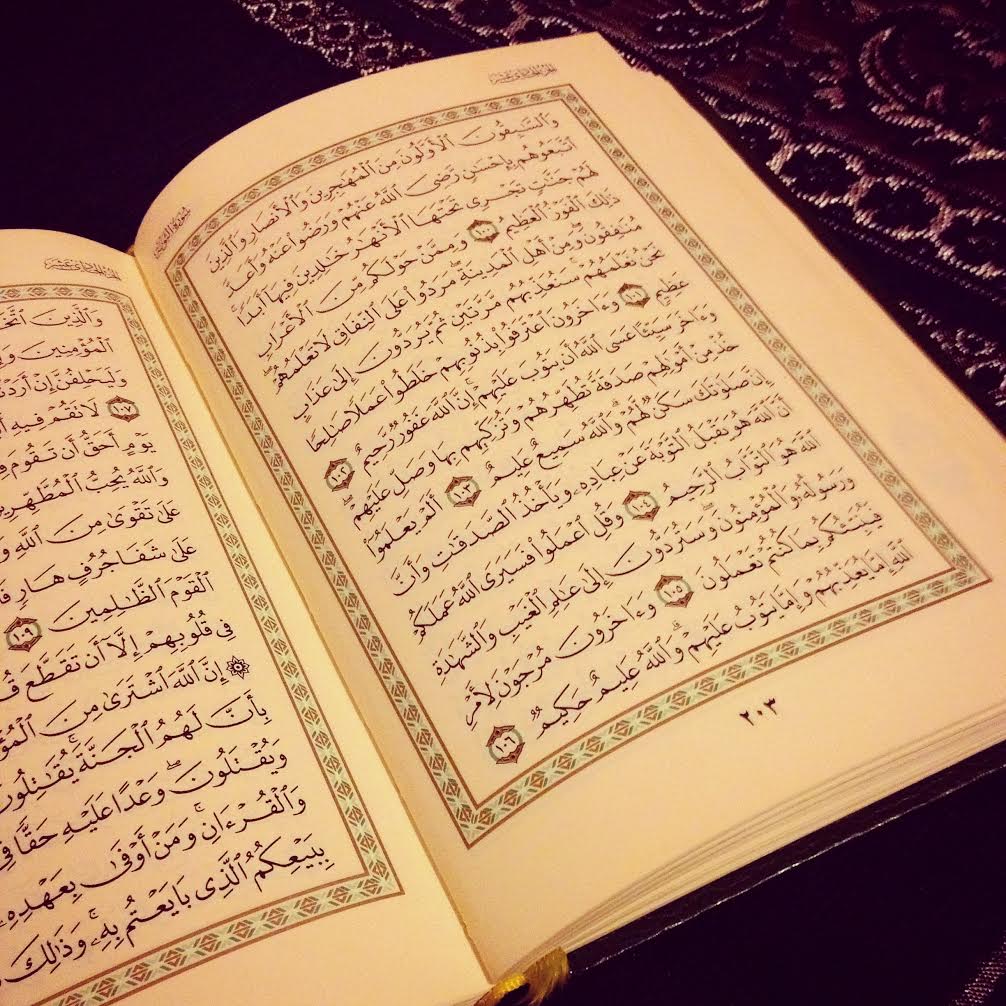 الجزء الحادي عشر
سورة التوبة
وَٱلسَّٰبِقُونَ ٱلْأَوَّلُونَ مِنَ ٱلْمُهَٰجِرِينَ وَٱلْأَنصَارِ وَٱلَّذِينَ
ٱتَّبَعُوهُم بِإِحْسَٰنٍ رَّضِىَ ٱللَّهُ عَنْهُمْ وَرَضُوا۟ عَنْهُ وَأَعَدَّ
لَهُمْ جَنَّٰتٍ تَجْرِى تَحْتَهَا ٱلْأَنْهَٰرُ خَٰلِدِينَ فِيهَآ أَبَدًا ۚ
ذَٰلِكَ ٱلْفَوْزُ ٱلْعَظِيمُ ١٠٠ وَمِمَّنْ حَوْلَكُم مِّنَ ٱلْأَعْرَابِ
مُنَٰفِقُونَ ۖ وَمِنْ أَهْلِ ٱلْمَدِينَةِ ۖ مَرَدُوا۟ عَلَى ٱلنِّفَاقِ لَا تَعْلَمُهُمْ ۖ
نَحْنُ نَعْلَمُهُمْ ۚ سَنُعَذِّبُهُم مَّرَّتَيْنِ ثُمَّ يُرَدُّونَ إِلَىٰ عَذَابٍ
عَظِيمٍ ١٠١ وَءَاخَرُونَ ٱعْتَرَفُوا۟ بِذُنُوبِهِمْ خَلَطُوا۟ عَمَلًا صَٰلِحًا
وَءَاخَرَ سَيِّئًا عَسَى ٱللَّهُ أَن يَتُوبَ عَلَيْهِمْ ۚ إِنَّ ٱللَّهَ غَفُورٌ رَّحِيمٌ ١٠٢
خُذْ مِنْ أَمْوَٰلِهِمْ صَدَقَةً تُطَهِّرُهُمْ وَتُزَكِّيهِم بِهَا وَصَلِّ عَلَيْهِمْ ۖ
إِنَّ صَلَوٰتَكَ سَكَنٌ لَّهُمْ ۗ وَٱللَّهُ سَمِيعٌ عَلِيمٌ ١٠٣ أَلَمْ يَعْلَمُوٓا۟
أَنَّ ٱللَّهَ هُوَ يَقْبَلُ ٱلتَّوْبَةَ عَنْ عِبَادِهِۦ وَيَأْخُذُ ٱلصَّدَقَٰتِ وَأَنَّ
ٱللَّهَ هُوَ ٱلتَّوَّابُ ٱلرَّحِيمُ ١٠٤ وَقُلِ ٱعْمَلُوا۟ فَسَيَرَى ٱللَّهُ عَمَلَكُمْ
وَرَسُولُهُۥ وَٱلْمُؤْمِنُونَ ۖ وَسَتُرَدُّونَ إِلَىٰ عَٰلِمِ ٱلْغَيْبِ وَٱلشَّهَٰدَةِ
فَيُنَبِّئُكُم بِمَا كُنتُمْ تَعْمَلُونَ ١٠٥ وَءَاخَرُونَ مُرْجَوْنَ لِأَمْرِ
ٱللَّهِ إِمَّا يُعَذِّبُهُمْ وَإِمَّا يَتُوبُ عَلَيْهِمْ ۗ وَٱللَّهُ عَلِيمٌ حَكِيمٌ ١٠٦
٢٠٣
الجزء الحادي عشر
وَٱلَّذِينَ
ٱلْمُؤْمِنِينَ
وَلَيَحْلِفُنَّ إِنْ
١٠٧ لَا تَقُمْ فِيهِ
يَوْمٍ أَحَقُّ أَن تَقُومَ
وَٱللَّهُ يُحِبُّ
عَلَىٰ تَقْوَىٰ مِنَ ٱللَّهِ
عَلَىٰ شَفَا جُرُفٍ هَارٍ
ٱلْقَوْمَ ٱلظَّٰلِمِينَ ١٠٩
فِى قُلُوبِهِمْ إِلَّآ أَن تَقَطَّعَ
۞ إِنَّ ٱللَّهَ ٱشْتَرَىٰ مِنَ
بِأَنَّ لَهُمُ ٱلْجَنَّةَ ۚ يُقَٰتِلُونَ
وَيُقْتَلُونَ ۖ وَعْدًا عَلَيْهِ حَقًّا
وَٱلْقُرْءَانِ ۚ وَمَنْ أَوْفَىٰ بِعَهْدِهِۦ
بِبَيْعِكُمُ ٱلَّذِى بَايَعْتُم بِهِۦ ۚ وَذَٰلِكَ